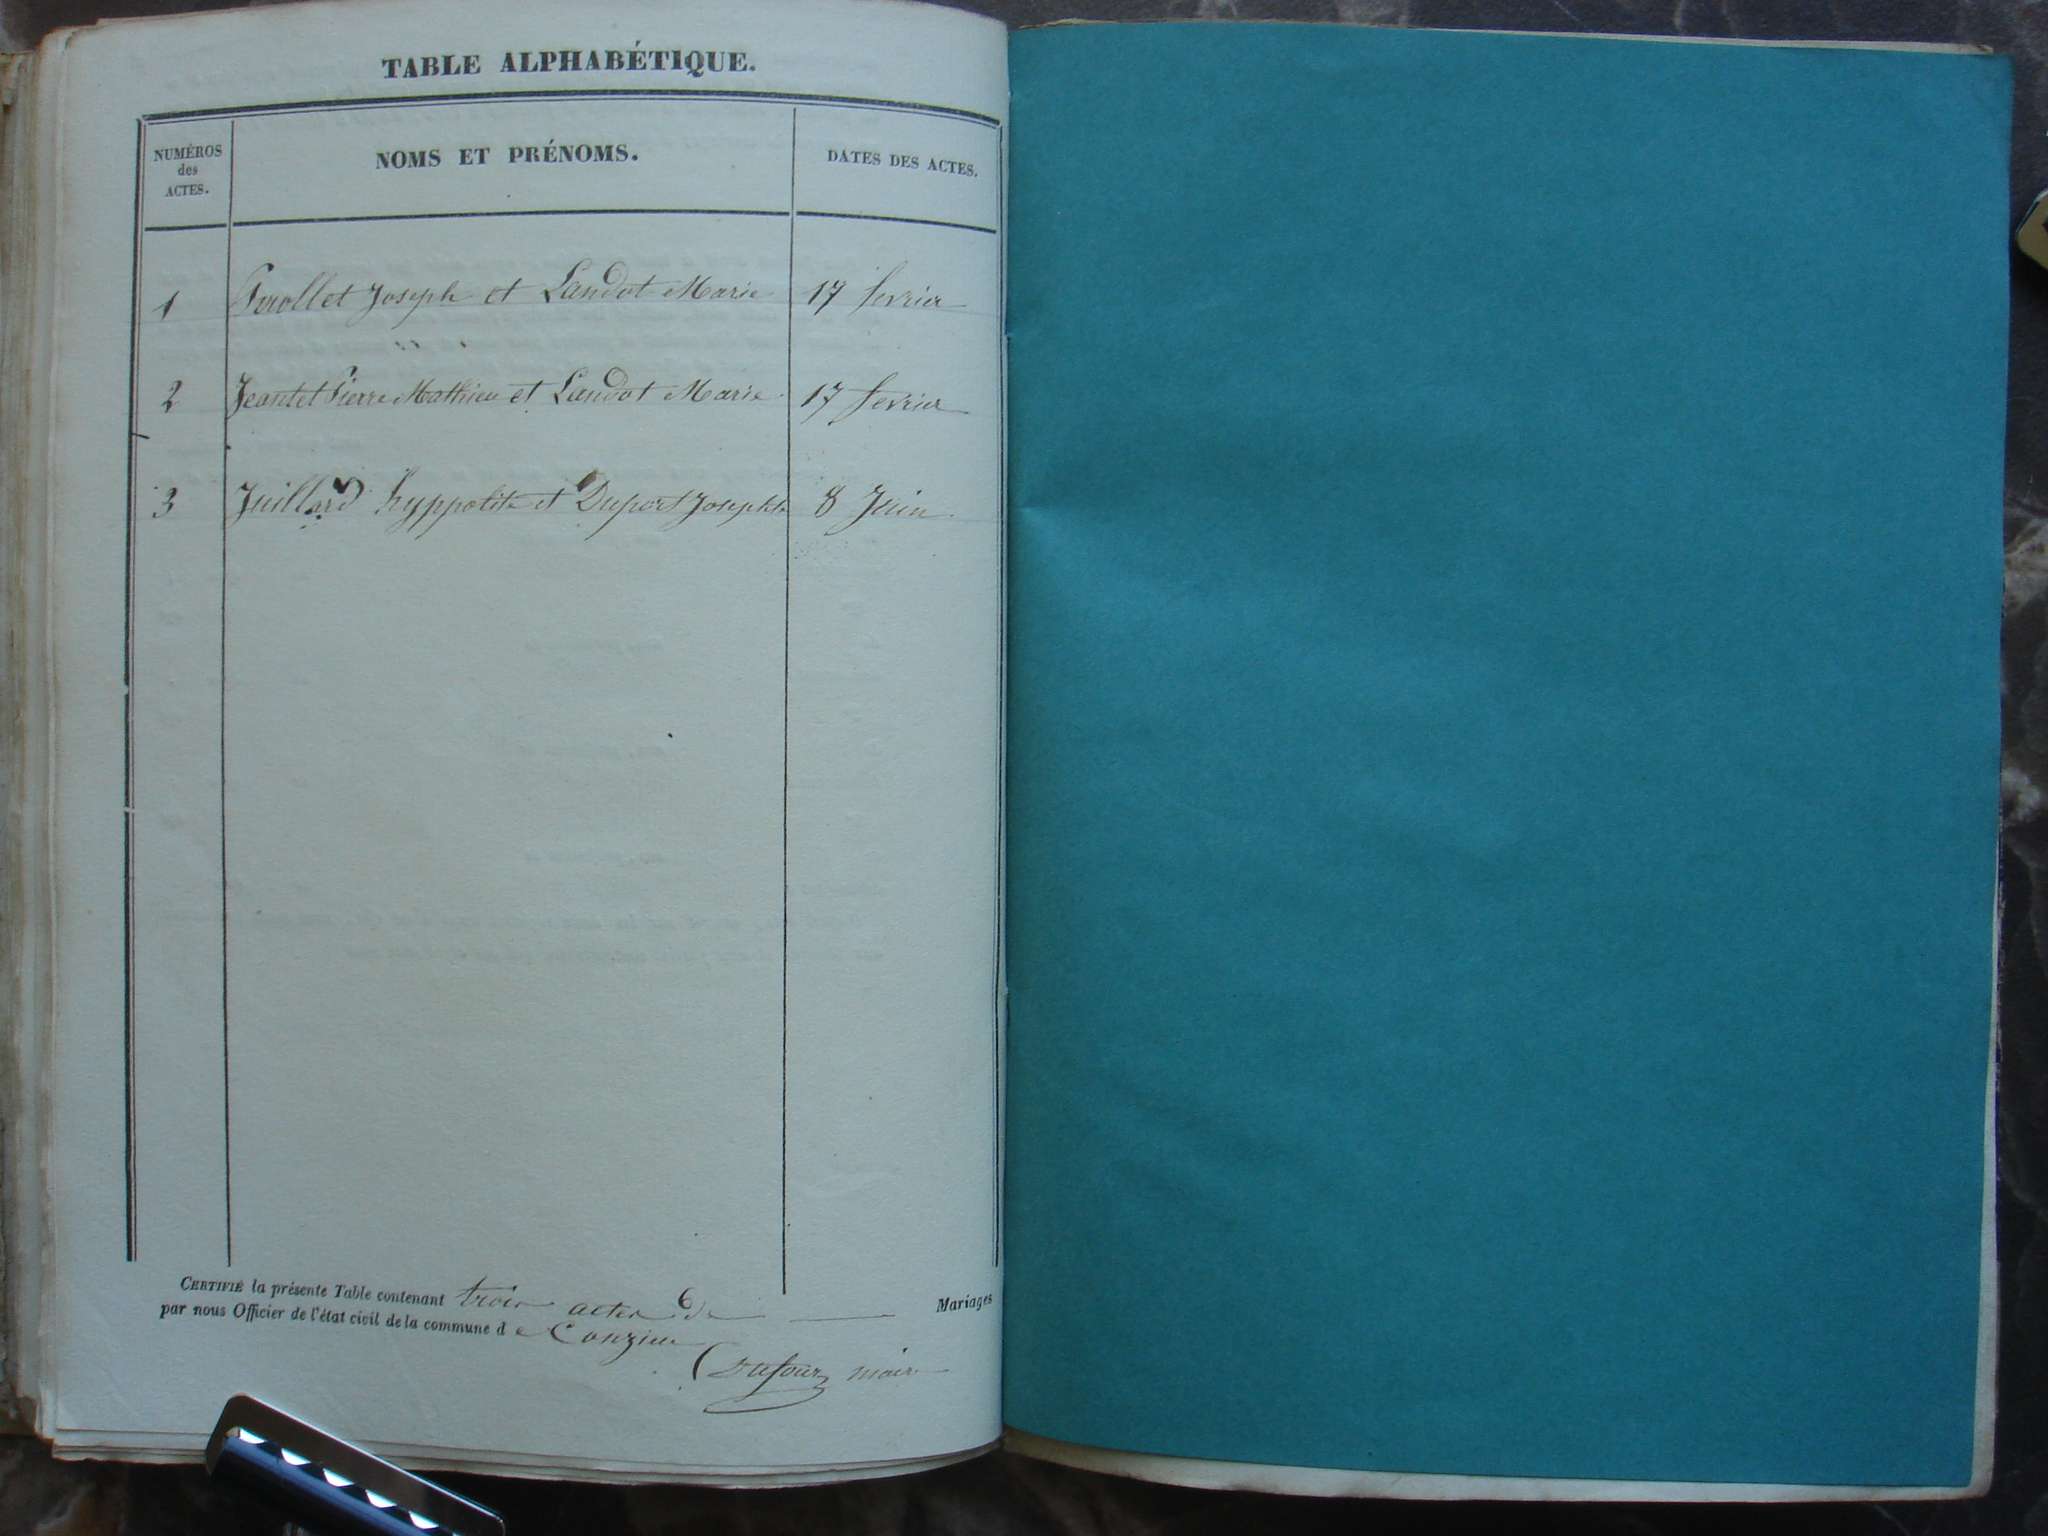 TABLE ALPHABÉTIQUE.
NUMÉROS
des
ACTES.
NOMS ET PRÉNOMS.
DATES DES ACTES.
1 Joseph et Landot Marie 17 fevrier
2 Jeantet Pierre Mathieu et Landot Marie 17 fevrier
3 Juillard hyppolite et Duport Josephte 8 Juin
CERTIFIÉ la présente Table contenant trois actes de Mariages
par nous Officier de l'état civil de la commune d e Conzieu
Dufour maire